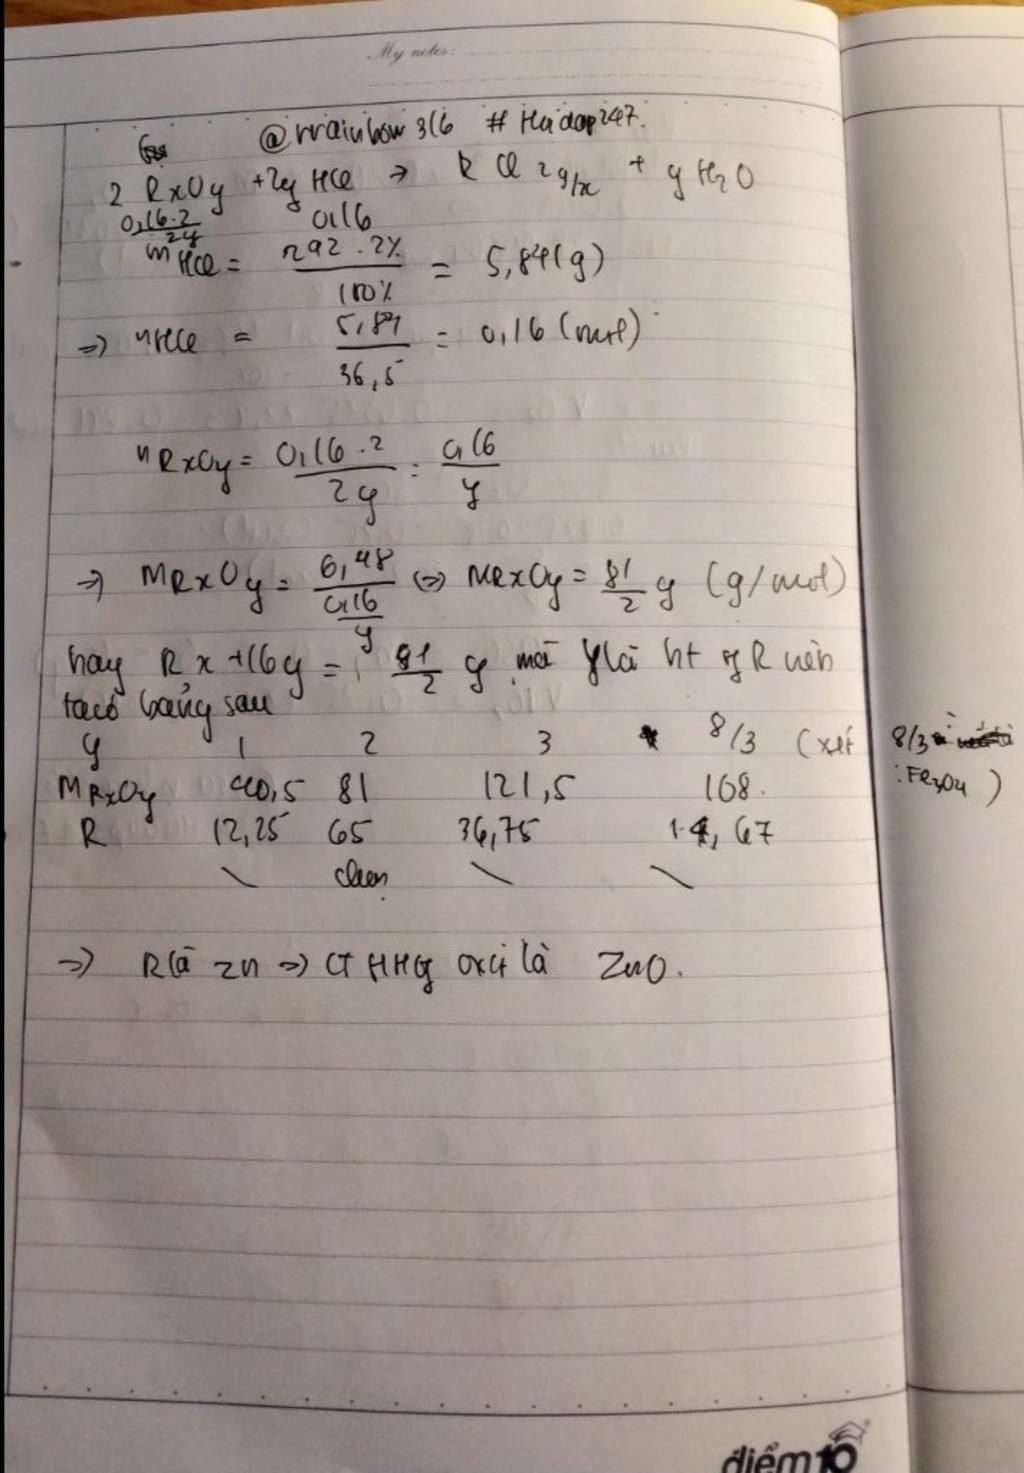 My notes:
@rrainbow316 # Hoidap247.
2 RxOy + 2y HCl → R Cl 2y/x + y H2O
0,16.2/2y 0,16
mHCl = 292.2%/100% = 5,84(g)
=> nHCl = 5,84/36,5 = 0,16 (mol)
nRxOy = 0,16.2/2y = 0,16/y
=> MRxOy = 6,48/(0,16/y) <=> MRxOy = 81/2 y (g/mol)
hay Rx + 16y = 81/2 y mà y là ht of R nên
ta có bảng sau
y 1 2 3 8/3 (xét 8/3
MRxOy 40,5 81 121,5 108. : Fe3O4 )
R 12,25 65 36,75 14,67
\ chọn \ \
=> R là Zn => CTHH of oxit là ZnO.
điểm 10